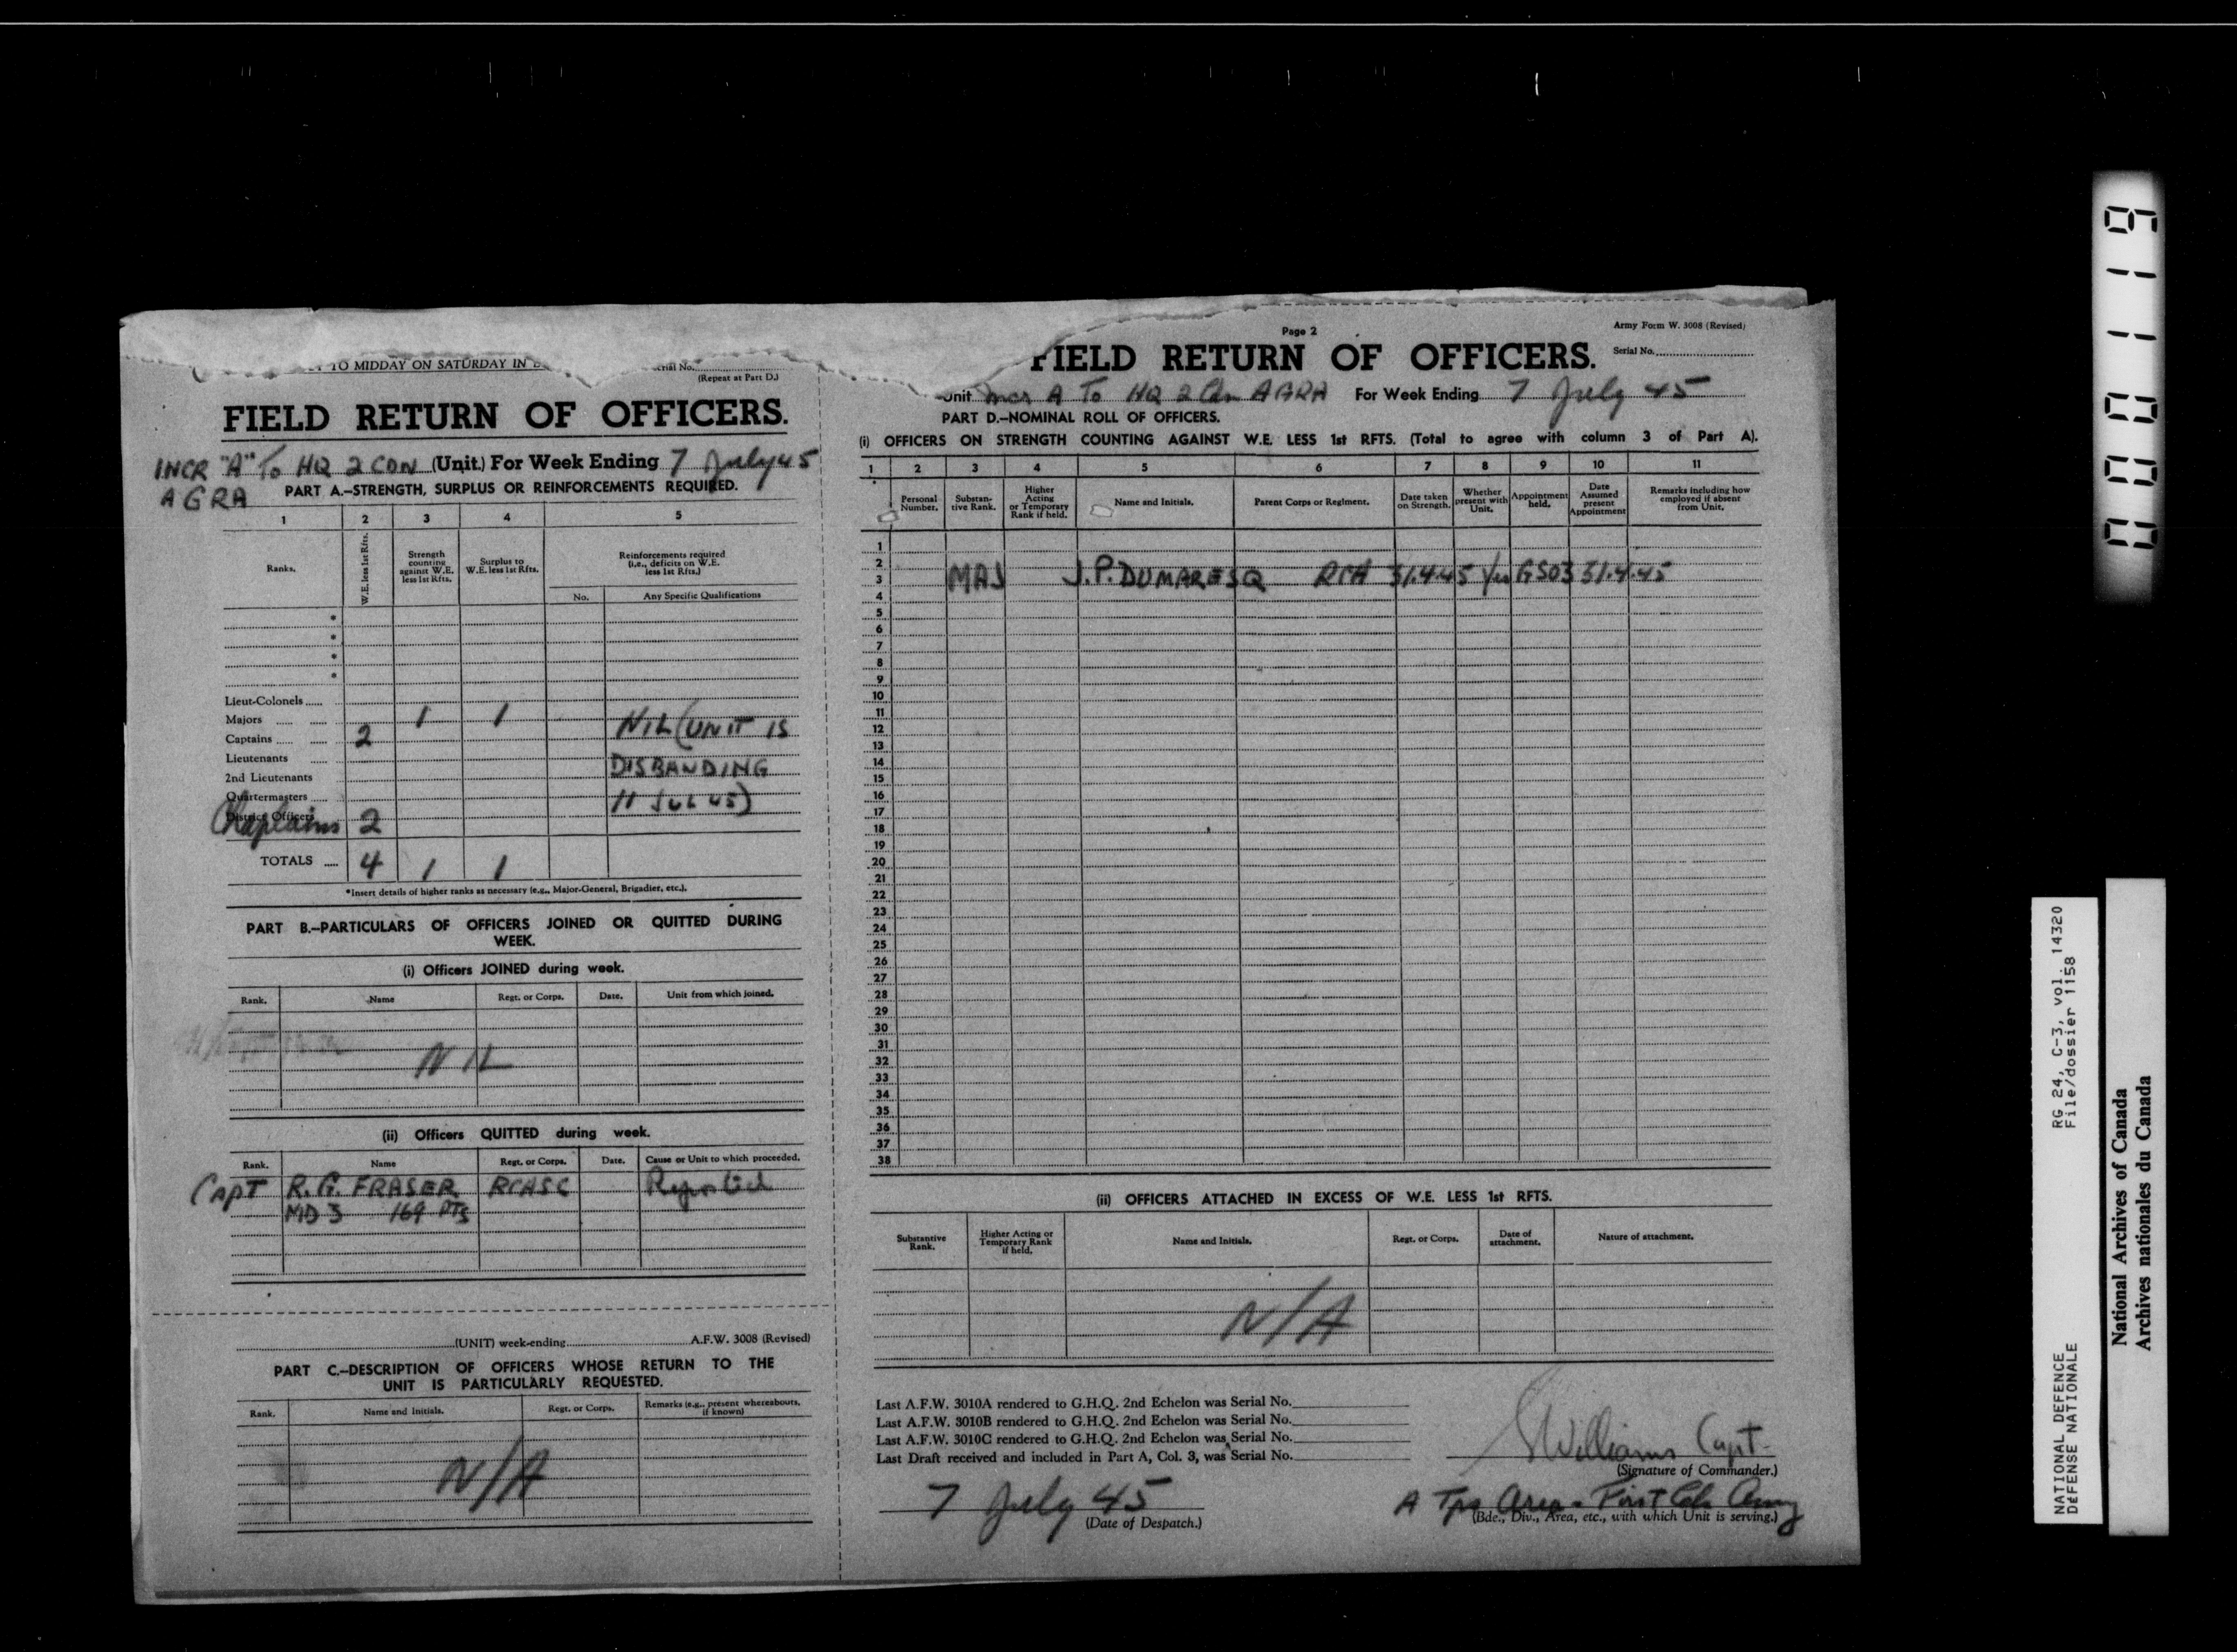 TO MIDDAY ON SATURDAY IN
(Repeat at Part D.)
FIELD RETURN OF OFFICERS.
INCR "A" To HQ 2 CDN (Unit.) For Week Ending 7 July 45
AGRA
PART A.—STRENGTH, SURPLUS OR REINFORCEMENTS REQUIRED.
1 2 3 4 5
Ranks. W.E. less 1st Rfts. Strength counting against W.E. less 1st Rfts. Surplus to W.E. less 1st Rfts. Reinforcements required (i.e., deficits on W.E. less 1st Rfts.)
No. Any Specific Qualifications
*
*
*
*
Lieut-Colonels
Majors 1 1
Captains 2 NIL (UNIT IS
Lieutenants DISBANDING
2nd Lieutenants
Quartermasters 11 JUL 45)
District Officers
Chaplains 2
TOTALS 4 1 1
*Insert details of higher ranks as necessary (e.g., Major-General, Brigadier, etc.).
PART B.—PARTICULARS OF OFFICERS JOINED OR QUITTED DURING
WEEK.
(i) Officers JOINED during week.
Rank. Name Regt. or Corps. Date. Unit from which joined.
NIL
(ii) Officers QUITTED during week.
Rank. Name Regt. or Corps. Date. Cause or Unit to which proceeded.
CAPT R.G. FRASER RCASC
MD 3 169 PTS
(UNIT) week-ending A.F.W. 3008 (Revised)
PART C.—DESCRIPTION OF OFFICERS WHOSE RETURN TO THE
UNIT IS PARTICULARLY REQUESTED.
Rank. Name and Initials. Regt. or Corps. Remarks (e.g., present whereabouts, if known)
N/A
Page 2
Army Form W. 3008 (Revised)
FIELD RETURN OF OFFICERS.
Serial No.
Unit Incr A To HQ 2 Cdn AGRA For Week Ending 7 July 45
PART D.—NOMINAL ROLL OF OFFICERS.
(i) OFFICERS ON STRENGTH COUNTING AGAINST W.E. LESS 1st RFTS. (Total to agree with column 3 of Part A).
1 2 3 4 5 6 7 8 9 10 11
Personal Number. Substantive Rank. Higher Acting or Temporary Rank if held. Name and Initials. Parent Corps or Regiment. Date taken on Strength. Whether present with Unit. Appointment held. Date Assumed present Appointment Remarks including how employed if absent from Unit.
1
2
3 MAJ J.P. DUMARESQ RCA 31.4.45 GSO3 31.4.45
4
5
6
7
8
9
10
11
12
13
14
15
16
17
18
19
20
21
22
23
24
25
26
27
28
29
30
31
32
33
34
35
36
37
38
(ii) OFFICERS ATTACHED IN EXCESS OF W.E. LESS 1st RFTS.
Substantive Rank. Higher Acting or Temporary Rank if held. Name and Initials. Regt. or Corps. Date of attachment. Nature of attachment.
N/A
Last A.F.W. 3010A rendered to G.H.Q. 2nd Echelon was Serial No.
Last A.F.W. 3010B rendered to G.H.Q. 2nd Echelon was Serial No.
Last A.F.W. 3010C rendered to G.H.Q. 2nd Echelon was Serial No.
Last Draft received and included in Part A, Col. 3, was Serial No.
Williams Capt
(Signature of Commander.)
7 July 45
(Date of Despatch.)
A Tps Area - First Cdn Army
(Bde., Div., Area, etc., with which Unit is serving.)
00001119
RG 24, C-3, vol. 14320
File/dossier 1158
NATIONAL DEFENCE
DÉFENSE NATIONALE
National Archives of Canada
Archives nationales du Canada